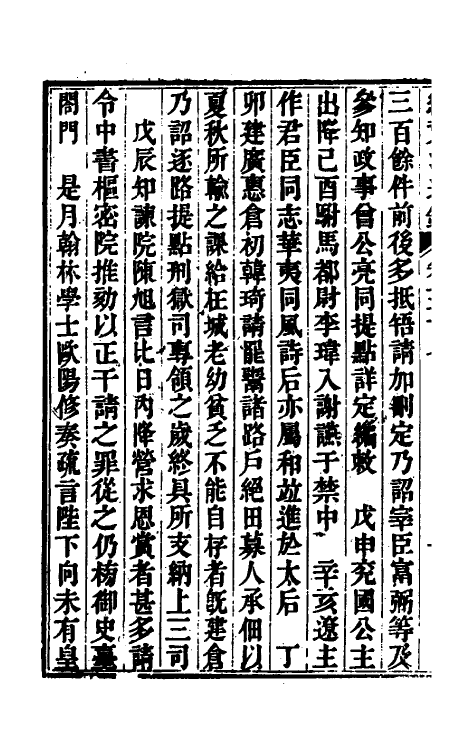 三百餘件前後多抵牾請加刪定乃詔宰臣富弼等及
參知政事曾公亮同提點詳定編敕　戊申兗國公主
出降己酉駙馬都尉李瑋入謝讌于禁中　辛亥遼主
作君臣同志華夷同風詩后亦屬和並進於太后　丁
卯建廣惠倉初韓琦請罷鬻諸路戶絕田募人承佃以
夏秋所輸之課給在城老幼貧乏不能自存者既建倉
乃詔逐路提點刑獄司專領之歲終具所支納上三司
戊辰知諫院陳旭言比日內降營求恩賞者甚多請
令中書樞密院推劾以正干請之罪從之仍榜御史臺
閤門　是月翰林學士歐陽修奏疏言陛下向未有皇